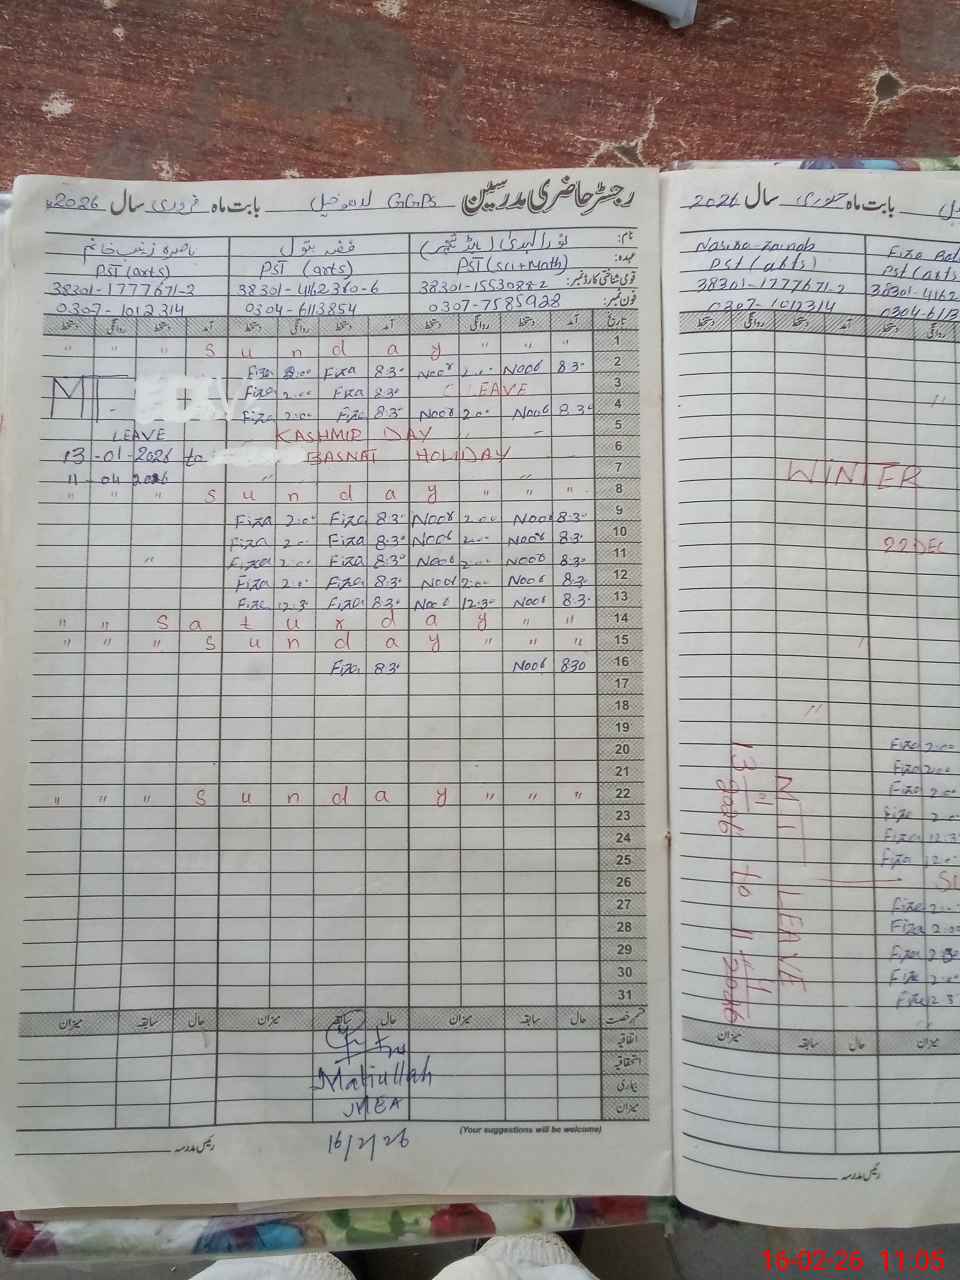 رجسٹر حاضری مدرسین GGPS بابت ماہ فروری سال 2026
نام: نور الہدیٰ (ہیڈ ٹیچر) فضہ بتول
عہدہ: PST (sci+Math) PST (arts) PST (arts)
قومی شناختی کارڈ نمبر: 38301-1553088-2 38301-4162360-6 38301-1777671-2
فون نمبر: 0307-7585928 0304-6113854 0307-1012314
تاریخ آمد دستخط روانگی دستخط آمد دستخط روانگی دستخط آمد دستخط روانگی دستخط
" " " S u n d a y " " " 1
Fiza 2:00 Fiza 8:30 Noor 2:00 Noor 8:30 2
Fiza 2:00 Fiza 8:30 C LEAVE 3
Fiza 2:00 Fiza 8:30 Noor 2:00 Noor 8:30 4
LEAVE KASHMIR DAY 5
13-01-2026 to BASNAT HOLIDAY 6
11-04 2026 7
" " " S u n d a y " " " 8
Fiza 2:00 Fiza 8:30 Noor 2:00 Noor 8:30 9
Fiza 2:00 Fiza 8:30 Noor 2:00 Noor 8:30 10
" Fiza 2:00 Fiza 8:30 Noor 2:00 Noor 8:30 11
Fiza 2:00 Fiza 8:30 Noor 2:00 Noor 8:30 12
Fiza 12:30 Fiza 8:30 Noor 12:30 Noor 8:30 13
" " S a t u r d a y " " 14
" " " S u n d a y " " " 15
Fiza 8:30 Noor 830 16
17
18
19
20
21
" " " S u n d a y " " " 22
23
24
25
26
27
28
29
30
31
قسم رخصت حال سابقہ میزان حال سابقہ میزان حال سابقہ میزان
اتفاقیہ
استحقاقیہ
بیماری
میزان
Matiullah
MEA
16/2/26
(Your suggestions will be welcome)
رئیس مدرسہ
بابت ماہ جنوری سال 2026
Nasira Zainab Fiza Bat
PST (arts) PST (arts
38301-1777671-2 38301-4162
0307-1012314 0304-6113
دستخط روانگی دستخط آمد دستخط روانگی
WINTER
22 DEC
Fiza 2:00
Fiza 2:00
Fiza 2:00
Fiza 2:00
Fiza 12:3
Fiza 12:0
Fiza 2:0
Fiza 2:00
Fiza
Fiza 2:0
Fiza 2 3
LEAVE
میزان سابقہ حال میزان
رئیس مدرسہ
16-02-26 11:05